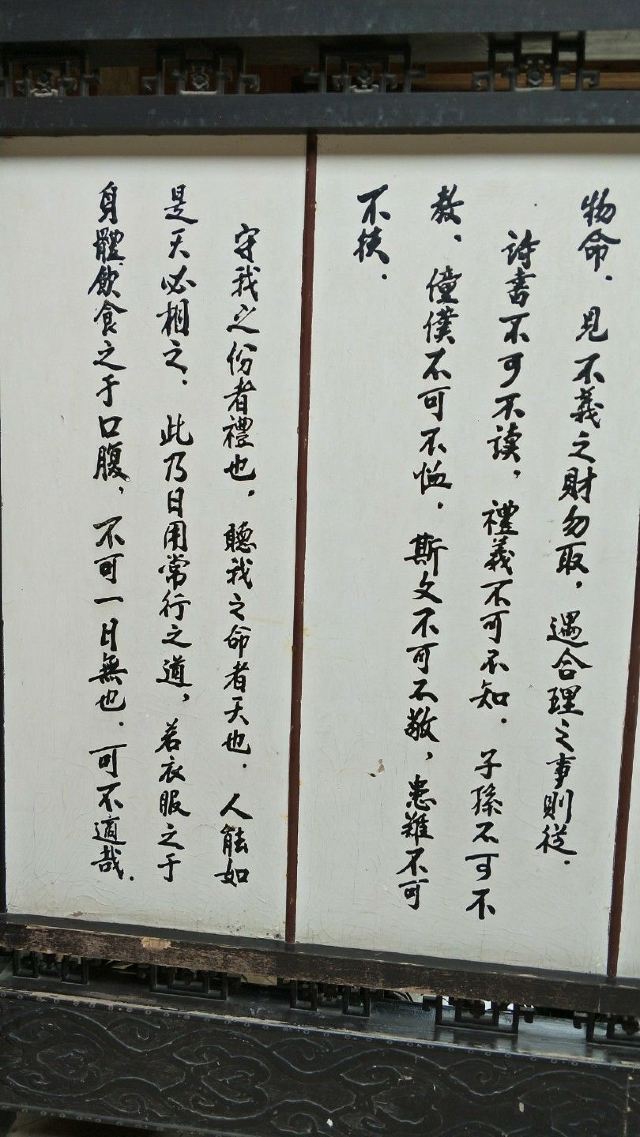 物命．見不義之財勿取，遇合理之事則從．
詩書不可不读，禮義不可不知．子孫不可不
教．僮僕不可不恤．斯文不可不敬，患難不可
不扶．
守我之份者禮也．聽我之命者天也．人能如
是天必相之．此乃日用常行之道，若衣服之于
身體，飲食之于口腹，不可一日無也．可不適哉．